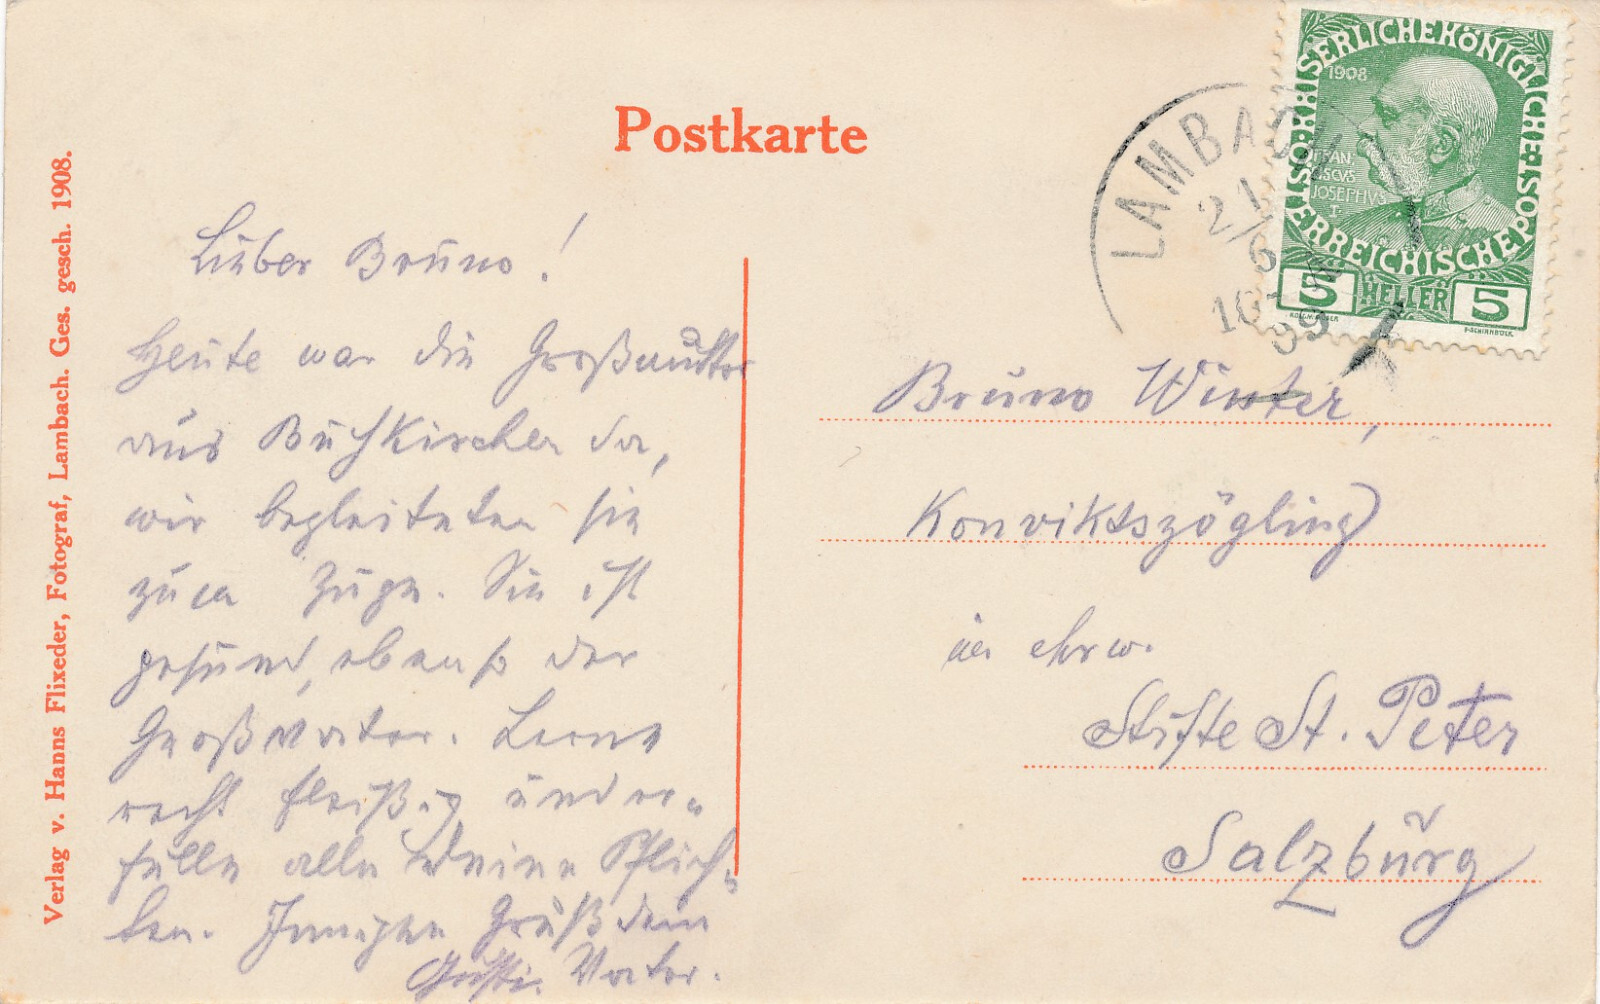 Postkarte
Verlag v. Hanns Flixeder, Fotograf, Lambach. Ges. gesch. 1908.
Lieber Bruno!
Heute war die Großmutter
aus Buchkirchen da,
wir begleiteten sie
zum Zuge. Sie ist
gesund, ebenso der
Großvater. Lerne
recht fleißig und er-
fülle alle Deine Pflich-
ten. Innigen Gruß dein
Gusti. Vater.
KAISERLICHEKÖNIGLICHE
ÖSTERREICHISCHE POST
1908
FRAN
CISCVS
JOSEPHVS
I.
5 HELLER 5
LAMBACH
21
6
Bruno Winter,
Konviktszögling
im ehrw.
Stifte St. Peter
Salzburg